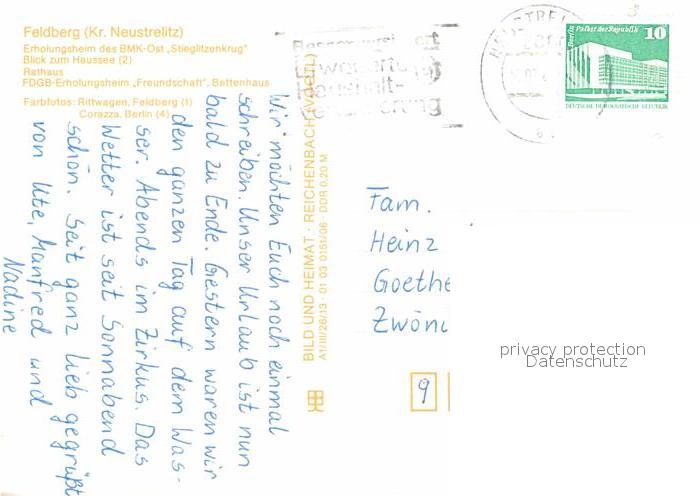 Feldberg (Kr. Neustrelitz)
Erholungsheim des BMK-Ost „Stieglitzenkrug"
Blick zum Haussee (2)
Rathaus
FDGB-Erholungsheim „Freundschaft", Bettenhaus
Farbfotos: Rittwagen, Feldberg (1)
Corazza, Berlin (4)
Wir möchten Euch noch einmal
schreiben. Unser Urlaub ist nun
bald zu Ende. Gestern waren wir
den ganzen Tag auf dem Was-
ser. Abends im Zirkus. Das
Wetter ist seit Sonnabend
schön. Seit ganz lieb gegrüßt
von Ute, Manfred und
Nadine
BILD UND HEIMAT · REICHENBACH (VOGTL)
A1/III/26/13 · 01 03 0151/06 · DDR 0,20 M
Berlin, Palast der Republik
10
DEUTSCHE DEMOKRATISCHE REPUBLIK
Fam.
Heinz
Goethe
Zwönı
9
privacy protection
Datenschutz